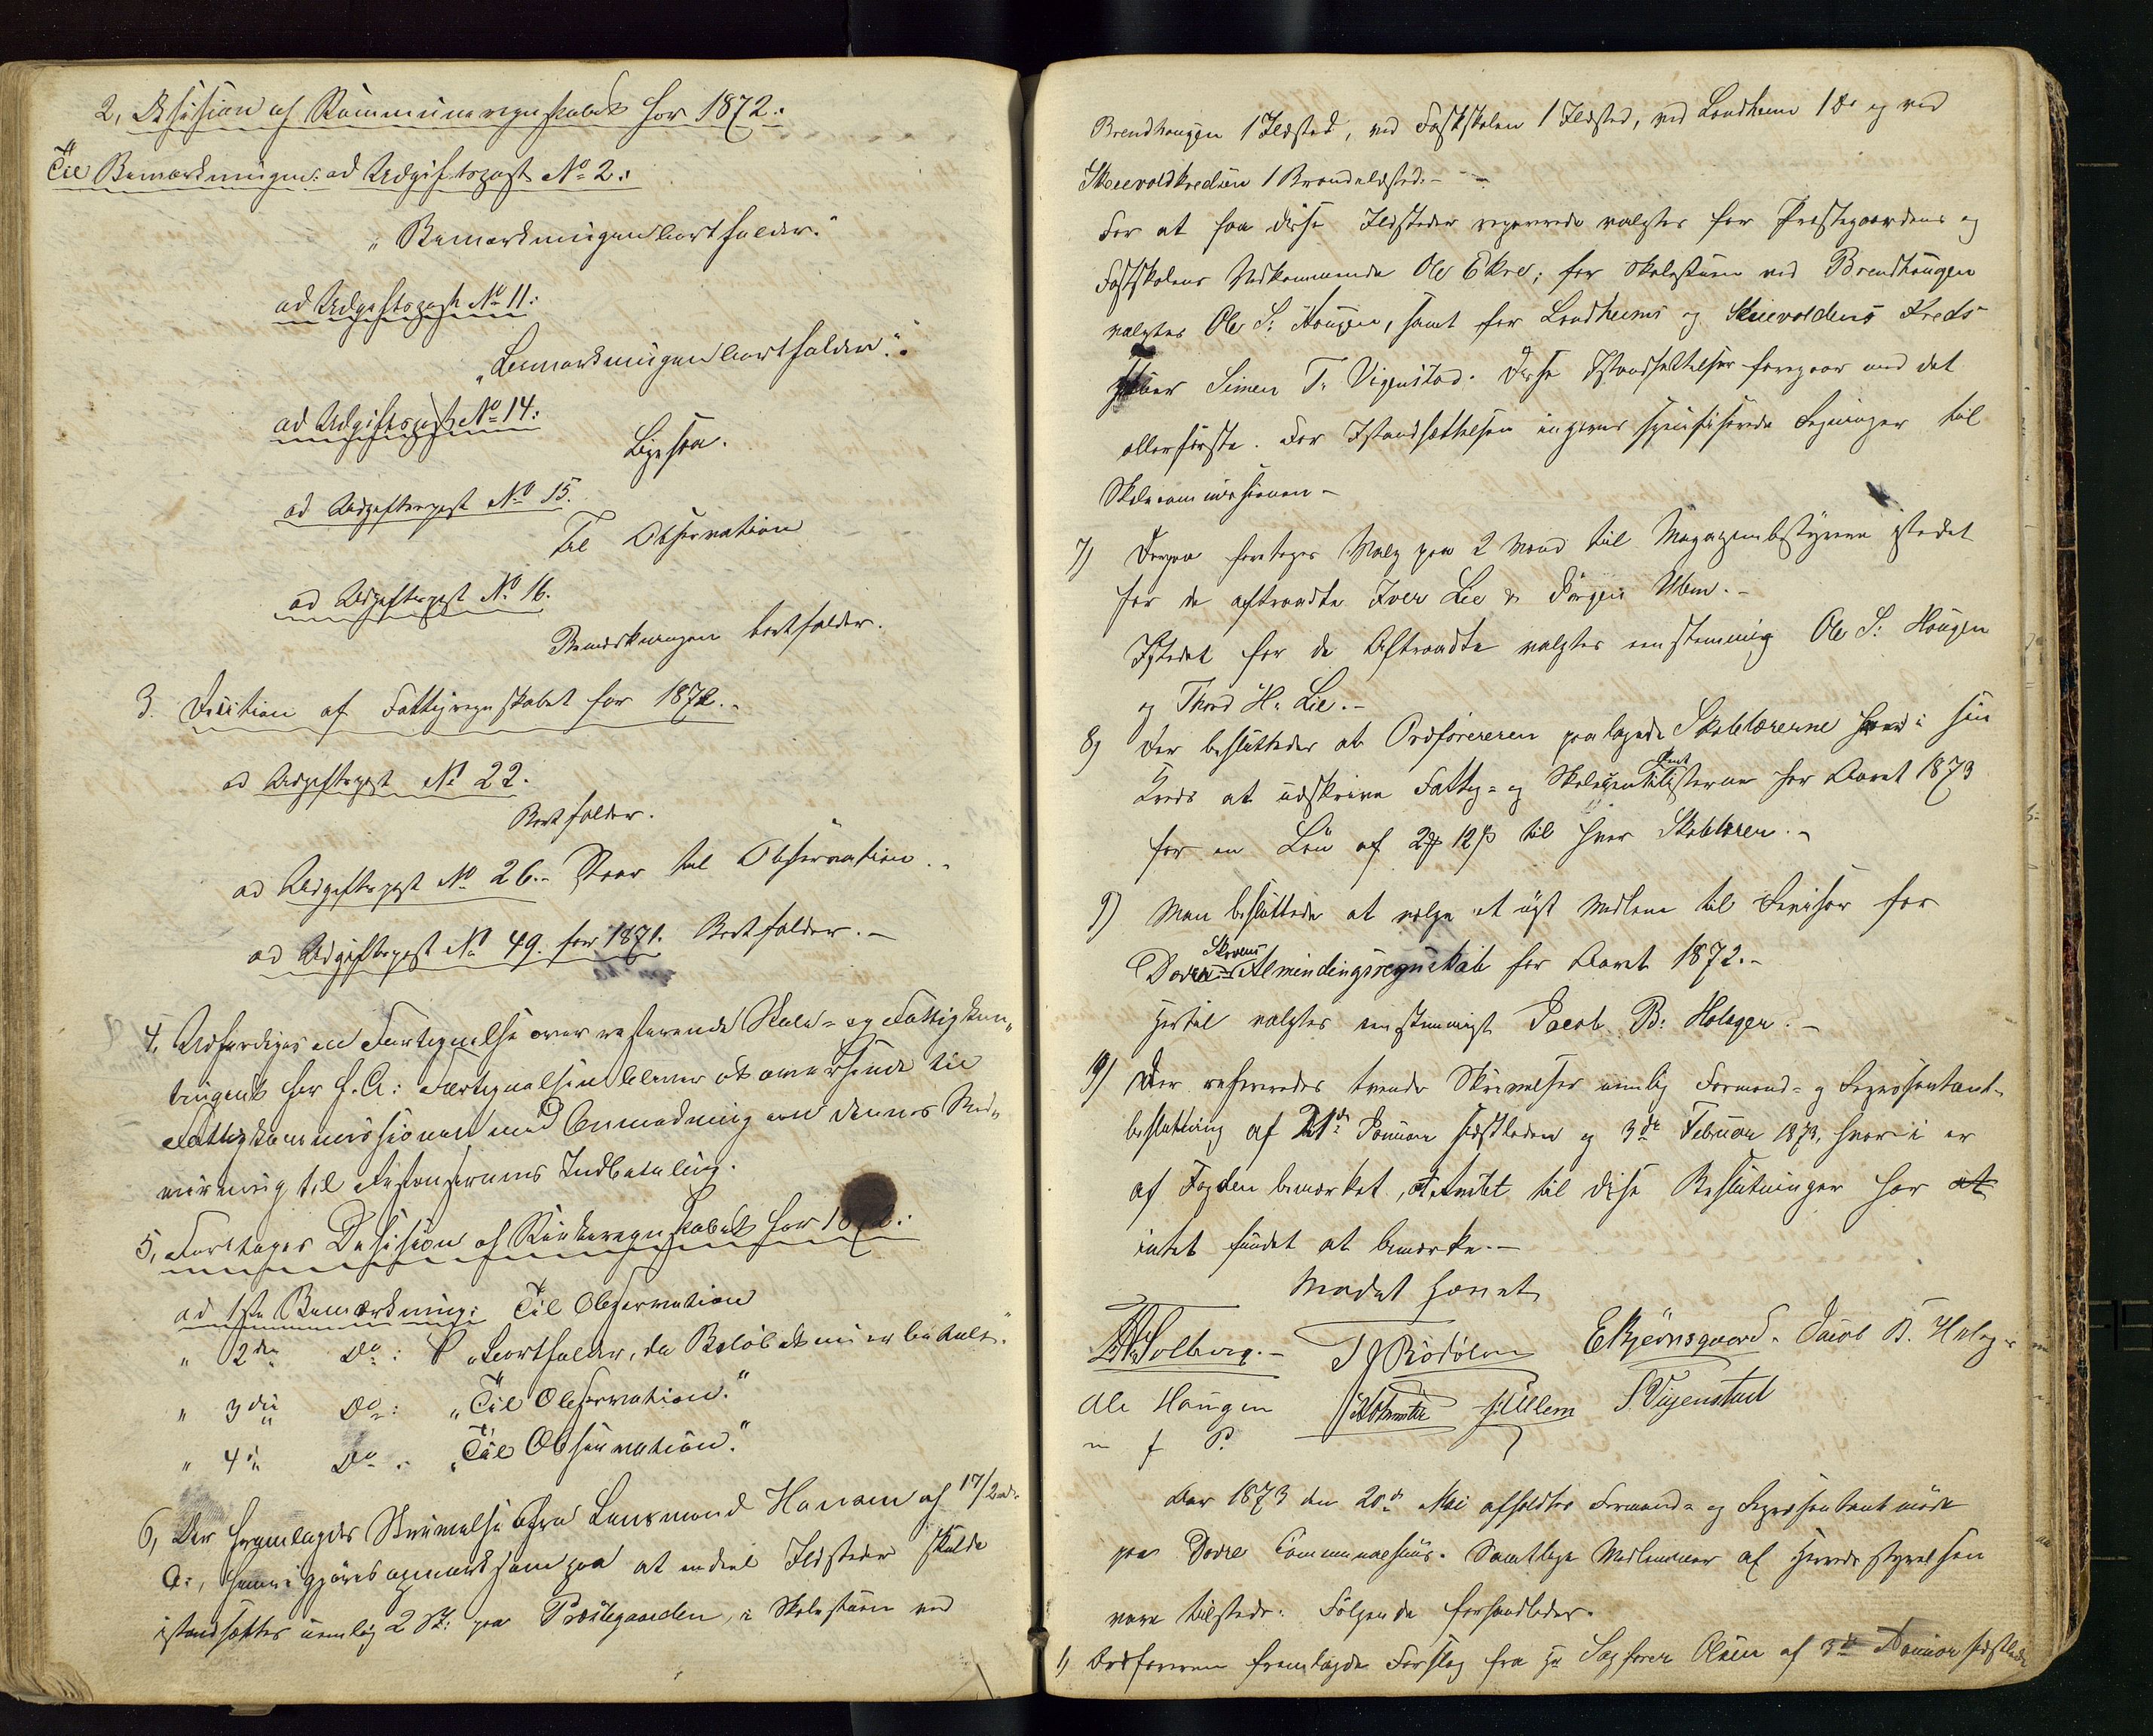 2, Desision af Kommuneregnskabet for 1872.
Til Bemærkningen ad Udgiftspost No 2:
„Bemærkningen bortfalder."
ad Udgiftspost No 11:
„Bemærkningen bortfalder."
ad Udgiftspost No 14:
Ligesaa.
ad Udgiftspost No 15.
Til Observation
ad Udgiftspost No 16.
Bemærkningen bortfalder.
3. Desition af Fattigregnskabet for 1872.
ad Udgiftspost No 22.
Bortfalder.
ad Udgiftspost No 26. Staar til Observation.
ad Udgiftspost No 49. for 1871. Bortfalder.
4, Udfærdiges en Fortegnelse over resterende Skole- og Fattigkon„
tingent for f. A: Fortegnelsen bliver at oversende til
Fattigkommissionen med Anmodning om dennes Med„
virkning til Restancernes Indbetaling.
5, Foretages Desision af Kirkeregnskabet for 1872:
ad 1ste Bemærkning: Til Observation
„ 2den Do: „Bortfalder, da Beløbet nu er betalt."
„ 3die Do: „Til Observation."
„ 4de Do: „Til Observation."
6, Der fremlagdes Skrivelse fra Lensmand Hansen af 17/2 d.
A:, hvori gjøres opmærksom paa at endeel Ildsteder skulde
istandsættes nemlig 2 St: paa Præstegaarden, i Skolestuen ved
Brendhaugen 1 Ildsted, ved Fastskolen 1 Ildsted, ved Landheim 1 Do og ved
Skievoldkredsen 1 Ildsted.
For at faa disse Ildsteder reparerede valgtes for Præstegaardens og
Fastskolens Vedkommende Ole Ekre; for Skolestuen ved Brendhaugen
valgtes Ole S: Haugen, samt for Landheims og Skievoldens Kreds
Simen T. Vigenstad. Disse Istandsættelser foregaar med det
allerførste. For Istandsættelsen indgives specificerede Regninger til
Skolecommissionen
7) Derpaa foretoges Valg paa 2 Mænd til Magazinbestyrere istedet
for de aftraadte Iver Lie & Jørgen Ulen.
Istedet for de Aftraadte valgtes eenstemmig Ole S: Haugen
og Thord H. Lie.
8) Der besluttedes at Ordføreren paalagde Skolelærerne hver i sin
Kreds at udskrive Fattig- og Skole listerne for Aaret 1873
for en Løn af 2 12 til hver Skolelærer.
9) Man besluttede at vælge et nyt Medlem til Revisor for
Skovens
Dovre Almindingsregnskab for Aaret 1872.
Hertil valgtes eenstemmigt Jacob B: Holager.
10) Der refereredes tvende Skrivelser nemlig Formand- og Repræsentant-
beslutning af 21de Januar sidstleden og 3de Februar 1873, hvori er
af Fogden bemærket, at Amtet til disse Beslutninger har at
intet fundet at bemærke.
Mødet hævet
Solberg. Ekjörnsgaard. Jacob B. Holager
Ole Haugen Ullern S. Vigenstad
m f P.
Aar 1873 den 20de Mai afholdtes Formands- og Repræsentantmøde
paa Dovre Communalhuus. Samtlige Medlemmer af Herredsstyrelsen
vare tilstede. Følgende forhandledes.
1) Ordføreren fremlagde Forslag fra Hr Sagfører Olsen af 3de Januar sidstleden